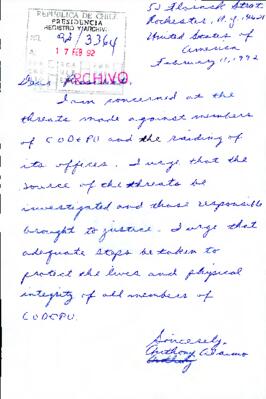 REPUBLICA DE CHILE
PRESIDENCIA
REGISTRO Y ARCHIVO
NR. 92/3364
A. 17 FEB 92
ARCHIVO
Street
Rochester, N.Y. 14621
United States of
America
February 11, 1992
Dear
I am concerned at the
threats made against members
of CODEPU and the raiding of
its offices. I urge that the
source of the threats be
investigated and those responsible
brought to justice. I urge that
adequate steps be taken to
protect the lives and physical
integrity of all members of
CODEPU.
Sincerely,
Anthony